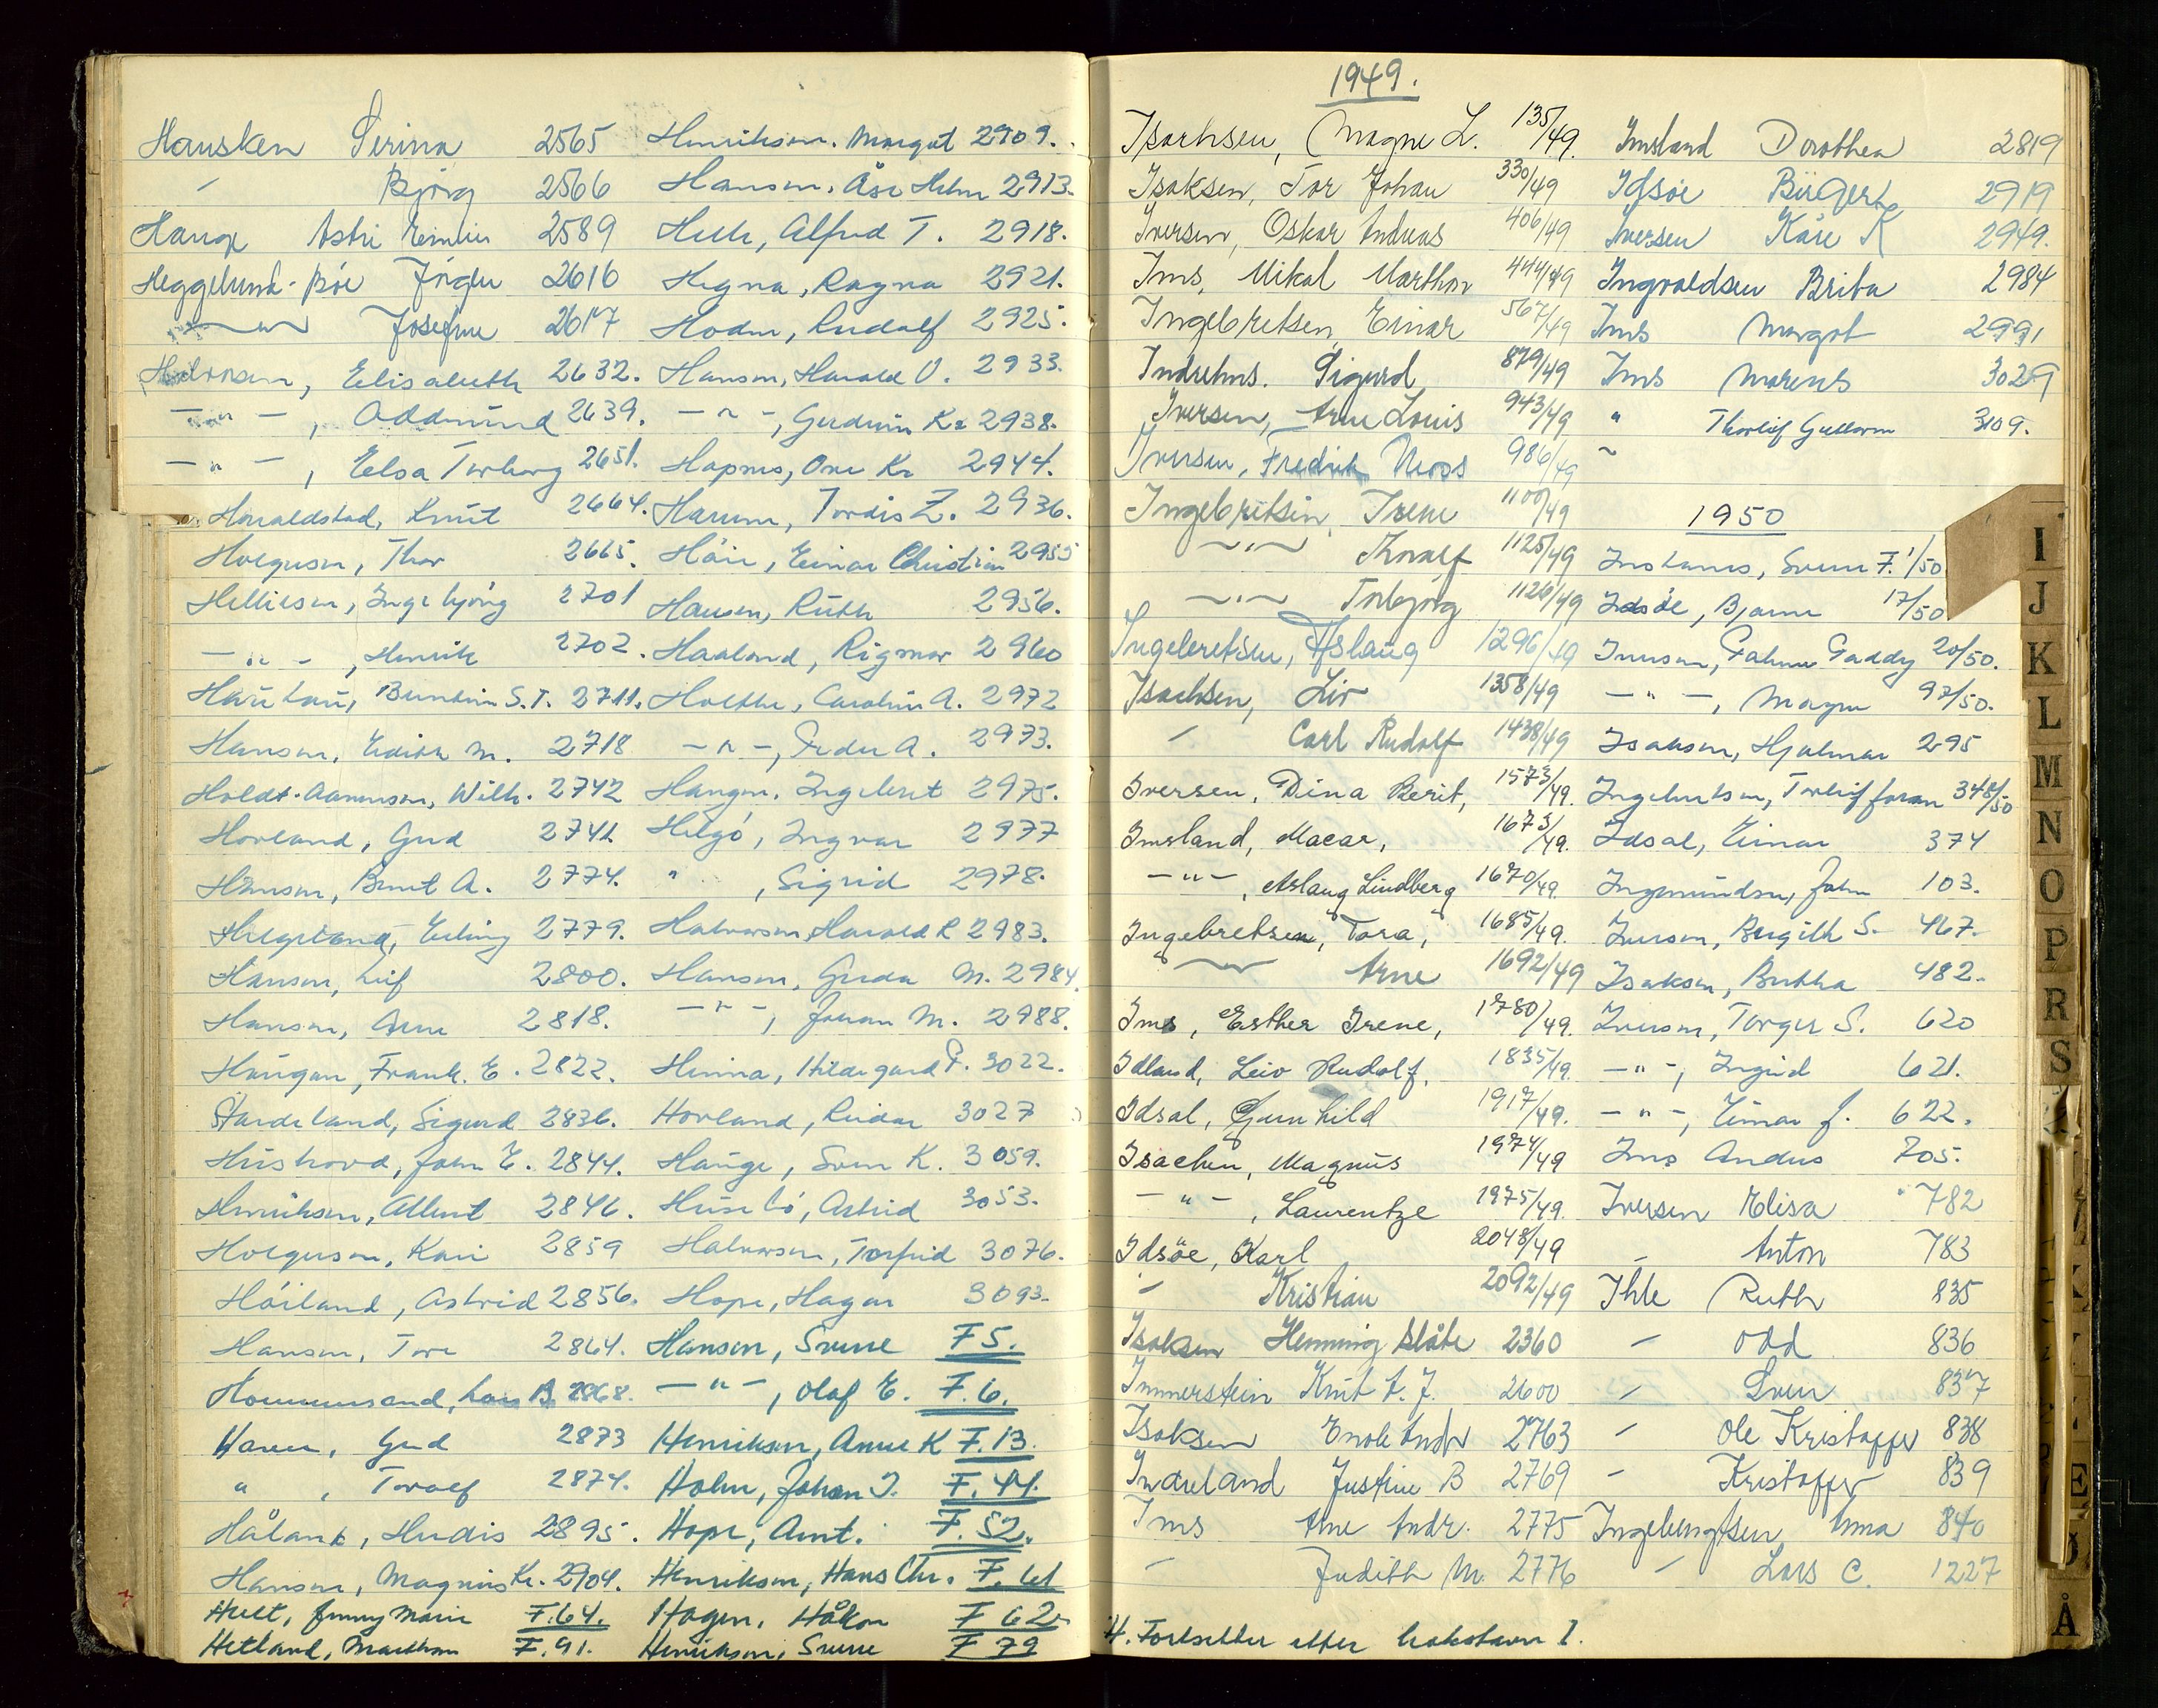 Hausken Serina 2565
〃 Bjørg 2566
Hauge Astri Emilie 2589
Heggelund-Bøe Jørgen 2616
—〃— Josefine 2617
Halvorsen, Elisabeth 2632.
—〃—, Oddmund 2639.
—〃—, Elsa Torborg 2651.
Haraldstad, Knut 2664.
Holgersen, Thor 2665.
Helliesen, Ingebjørg 2701
—〃—, Henrik 2702.
2711.
Hansen, Edith M. 2718
Holdt-Aanensen, Wilh. 2742
Hovland, Gud 2741
Hansen, Bernt A. 2774.
Helgeland, Erling 2779.
Hansen, Leif 2800.
Hansen, Arne 2818.
Haugan, Frank. E. 2822.
Hardeland, Sigurd 2836.
John E. 2844.
Henriksen, Albert 2846.
Holgersen, Kari 2859
Høiland, Astrid 2856.
Hansen, Tore 2864.
Hommersand, Lars B. 2868.
Haver, Gud 2873
〃, Toralf 2874.
Håland, Herdis 2895.
Hansen, Magnus Kr. 2904.
Hult, Jenny Marie F.64.
Hetland, Marthon F.91.
Henriksen. Margot 2909.
Hansen, Åse Helen 2913.
Alfred T. 2918.
Hegna, Ragna 2921.
Hodne, Rudolf 2925.
Hansen, Harald O. 2933.
—〃—, Gudrun Kr 2938.
Hopsnes, One Kr 2944.
Hansen, Tordis Z. 2936.
Einar Christian 2955
Hansen, Ruth 2956.
Haaland, Rigmor 2960
Holthe, Carolin A. 2972
—〃—, Peder A. 2973.
Haugen, Ingebret 2975.
Helgø, Ingvar 2977
〃, Sigrid 2978.
Halvorsen, Harald R 2983.
Hansen, Gerda M. 2984
—〃—, Johan M. 2988.
Hinna, Hildegard P. 3022.
Hovland, Reidar 3027
Hauge, Sven K. 3059.
Husebø, Astrid 3053.
Halvorsen, Torfrid 3076.
Hope, Hagar 3093.
Hansen, Sverre F5.
—〃—, Olaf E. F.6.
Henriksen, Anne K F.13.
Holm, Johan J. F.44.
Hope, Arnt. F.52.
Henriksen, Hans Chr. F.61
Hagen, Håkon F 62
Henriksen, Sverre F 79
1949.
Isachsen, Magne L. 135/49.
Isaksen, Tor Johan 330/49
Iversen, Oskar Andreas 406/49
Ims, Mikal Marthon 444/49
Ingebretsen, Einar 567/49
Indrehus. Sigurd 879/49
Iversen, Arne Louis 943/49
Iversen, Fredrik Moss 986/49
Ingebretsen, Irene 1100/49
—〃— Thoralf 1125/49
—〃— Torbjørg 1126/49
Ingebretsen, Aslaug 1296/49
Isachsen, Liv 1358/49
〃 Carl Rudolf 1438/49
Iversen, Dina Berit, 1573/49.
Imsland, Macar, 1673/49.
—〃—, Aslaug Lindberg 1670/49.
Ingebretsen, Tora, 1685/49.
—〃— Arne 1692/49
Ims, Esther Irene, 1780/49.
Idland, Leiv Rudolf, 1835/49.
Idsal, Gunhild 1917/49.
Isachen, Magnus 1974/49
—〃—, Laurentze 1975/49.
Idsøe, Karl 2048/49
〃 Kristian 2092/49
Isaksen Henning Slåte 2360
Immerstein Knut A. J. 2600
Isaksen Enok Andr 2763
Indreland Justine B 2769
Ims Arne Andr. 2775
〃 Judith M. 2776
Imsland Dorothea 2819
Idsøe Birger 2919
Iversen Kåre K 2949.
Ingvaldsen Brita 2984
Ims Margot 2991
Ims Marens 3029
〃 Thorleif Guttorm 3109.
1950
Instanes, Sverre F. 1/50
Idsøe, Bjarne 17/50
20/50.
—〃—, Magne 97/50.
Isaksen, Hjalmar 295
Ingebretsen, Torleif Joran 348/50
Idsal, Einar 374
Ingemundsen, John 103.
Iversen, Bergith S. 467.
Isaksen, Bertha 482.
Iversen, Torger S. 620
—〃—, Ingrid 621.
—〃—, Einar J. 622.
Ims Andreas 705.
Iversen Elisa 782
〃 Anton 783
Ihle Ruth 835
〃 Odd 836
〃 Sven 837
〃 Ole Kristoffer 838
〃 Kristoffer 839
Ingebrigtsen Anna 840
〃 Lars C. 1227
H. Fortsetter etter bokstaven I.
I
J
K
L
M
N
O
P
R
S
E
Å